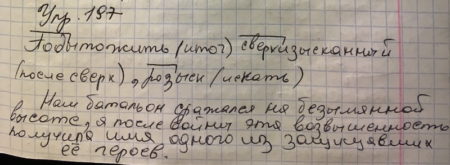 Упр. 197
Подытожить (итог) сверхизысканный
(после сверх), розыск (искать)
Нам батальон сражался на безымянной
высоте, а после войны эта возвышенность
получила имя одного из защищавших
её героев.